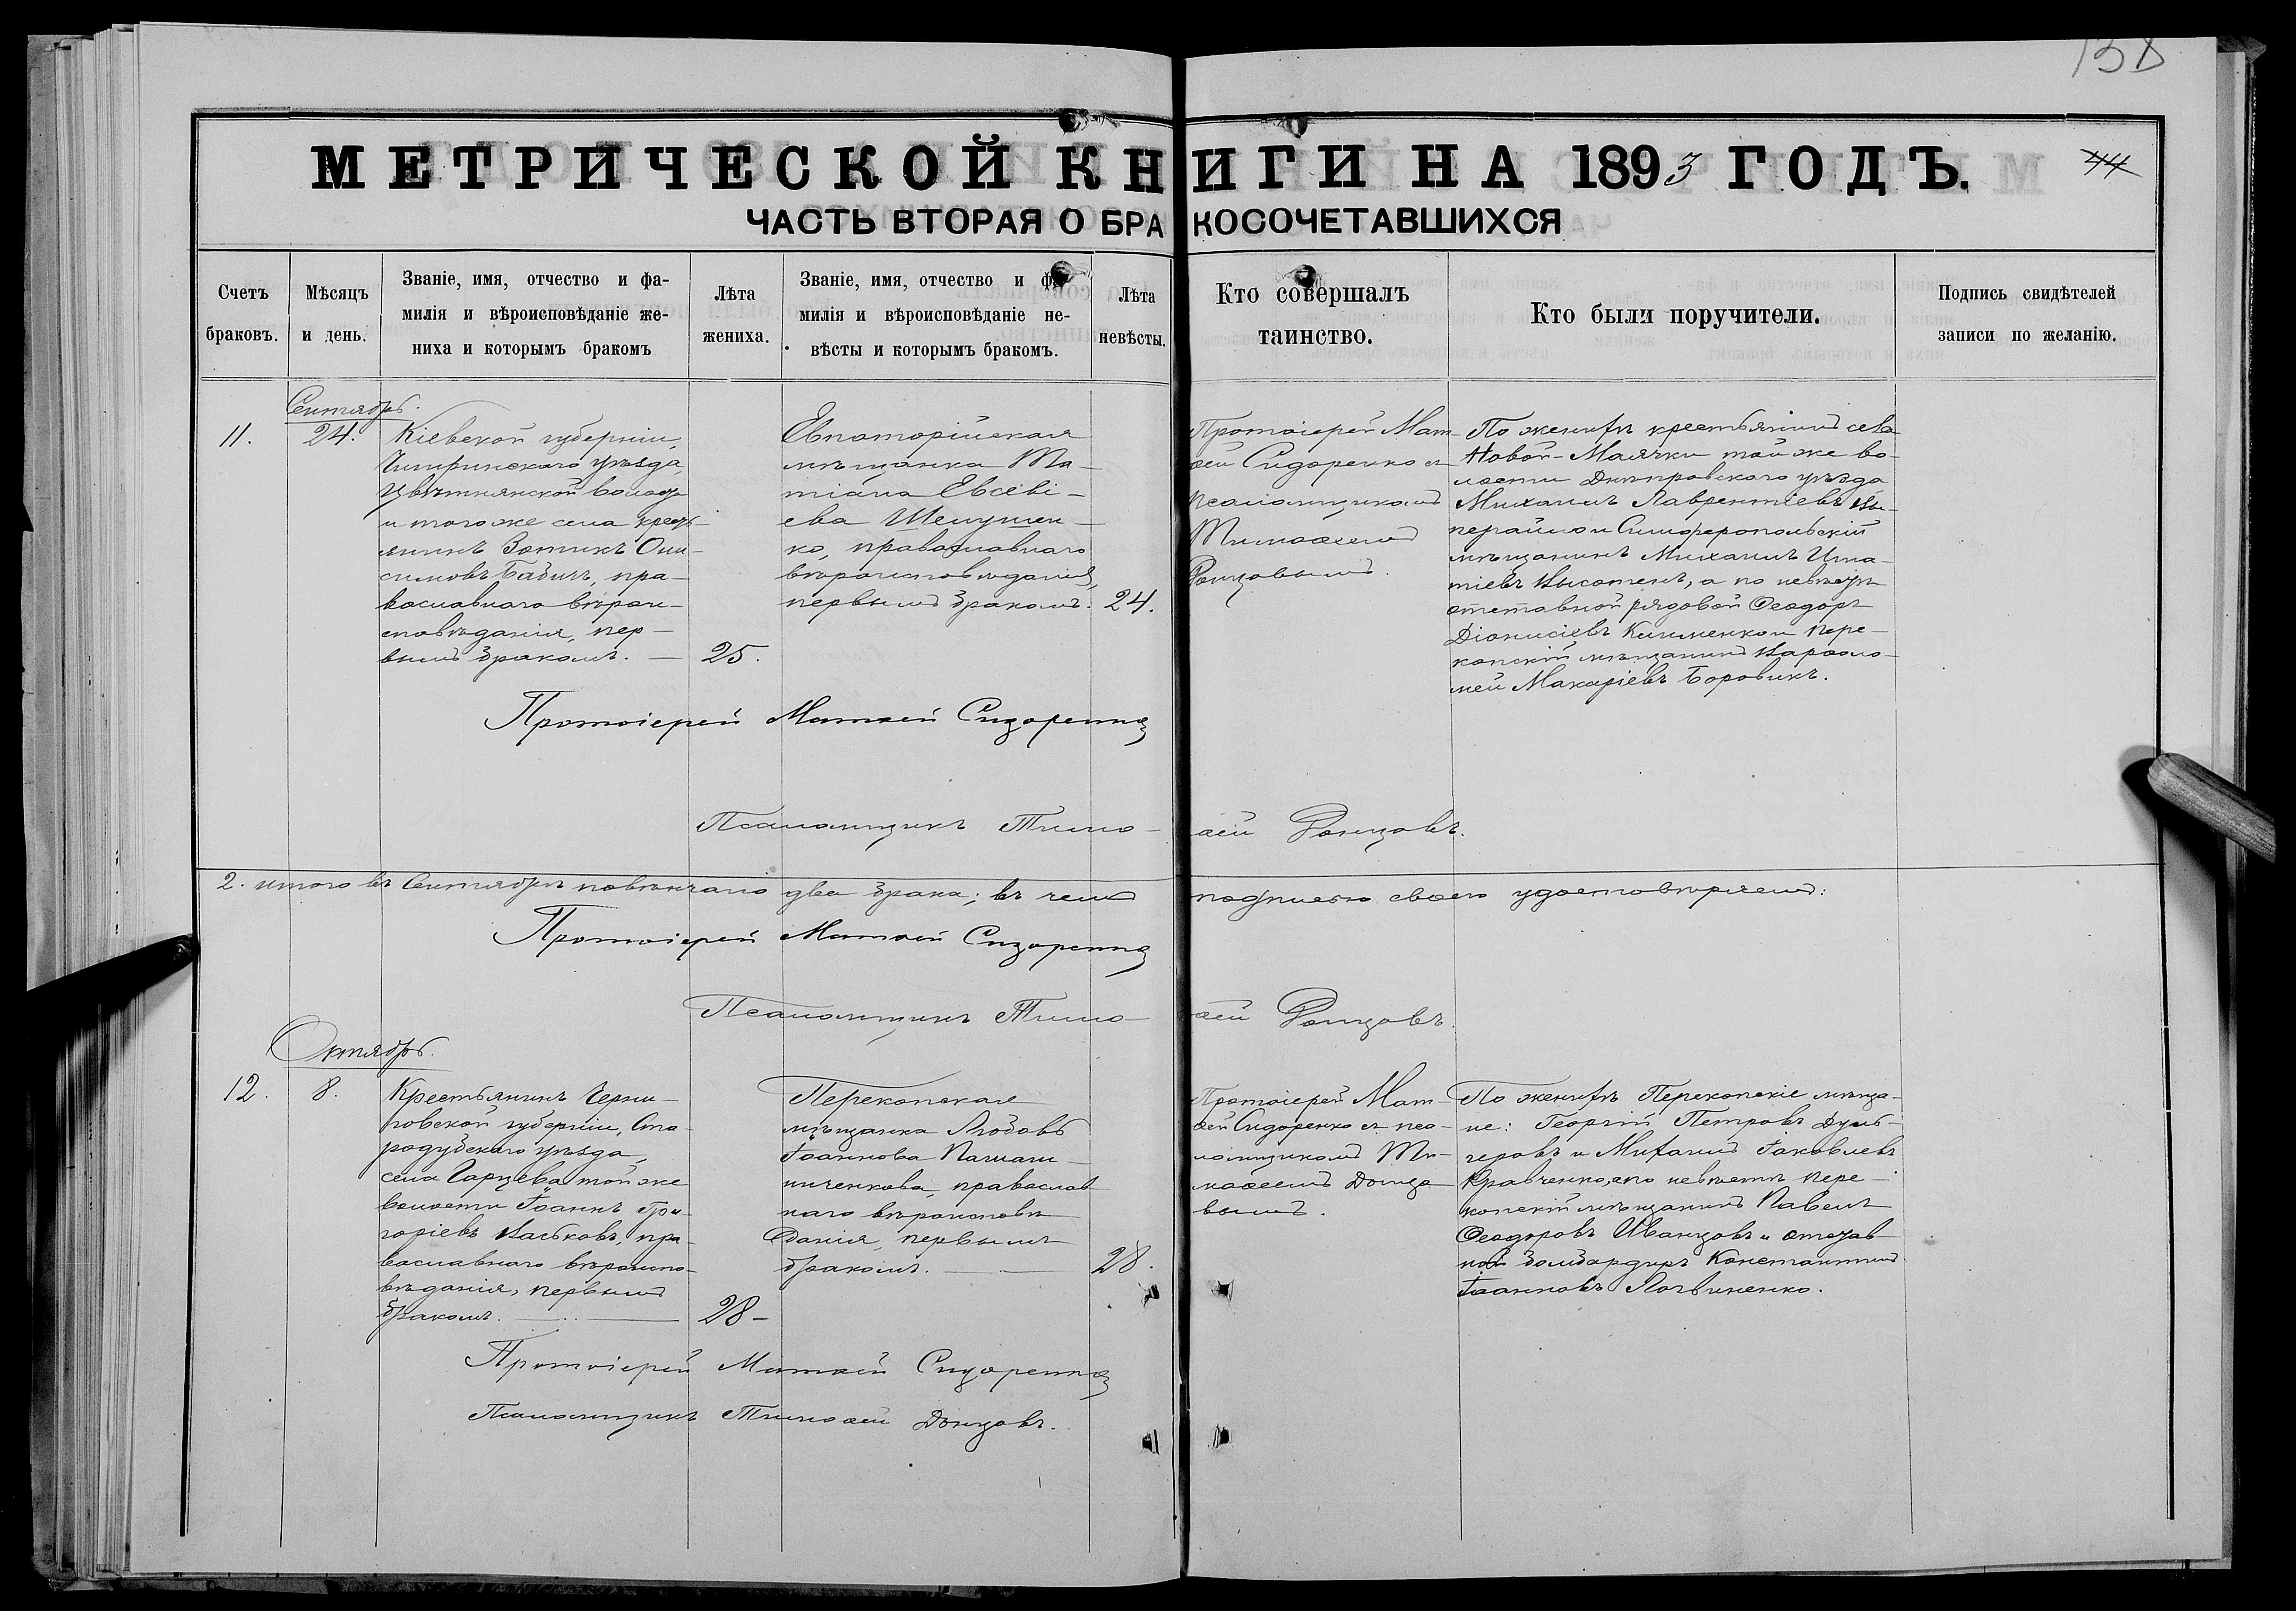 138
МЕТРИЧЕСКОЙ КНИГИ НА 1893 ГОДЪ.
44
ЧАСТЬ ВТОРАЯ О БРАКОСОЧЕТАВШИХСЯ
Счетъ
браковъ.
Мѣсяцъ
и день.
Званіе, имя, отчество и фа-
милія и вѣроисповѣданіе же-
ниха и которымъ бракомъ
Лѣта
жениха.
Званіе, имя, отчество и фа-
милія и вѣроисповѣданіе не-
вѣсты и которымъ бракомъ.
Лѣта
невѣсты.
Кто совершалъ
таинство.
Кто были поручители.
Подпись свидѣтелей
записи по желанію.
Сентябрь.
11.
24.
Кіевской губерніи,
Чигиринскаго уѣзда,
Цвѣтнянской волости
и того же села кресть-
янинъ Зотикъ Они-
симовъ Бабичъ, пра-
вославнаго вѣрои-
сповѣданія, пер-
вымъ бракомъ. —
25.
Евпаторійская
мѣщанка Та-
тіана Евсеві-
ева Шелушен-
ко, православнаго
вѣроисповѣданія,
первымъ бракомъ.
24.
Протоіерей Мат-
ѳей Сидоренко съ
псаломщикомъ
Тимоѳеемъ
Донцовымъ.
По женихѣ крестьянинъ села
Новой-Маячки той же во-
лости Днѣпровскаго уѣзда
Михаилъ Лаврентіевъ
и Симферопольскій
мѣщанинъ Михаилъ Игна-
тіевъ Высотенъ, а по невѣстѣ
отставной рядовой Ѳеодоръ
Діонисіевъ Клименко и Пере-
копскій мѣщанинъ Варѳоло-
мей Макаріевъ Боровикъ.
Протоіерей Матѳей Сидоренко
Псаломщикъ Тимоѳей Донцовъ.
2. итого въ Сентябрѣ повѣнчано два брака; въ чемъ подписью своею удостовѣряемъ:
Протоіерей Матѳей Сидоренко
Псаломщикъ Тимоѳей Донцовъ.
Октябрь.
12.
8.
Крестьянинъ Черни-
говской губерніи, Ста-
родубскаго уѣзда,
села Гарцева той же
волости Іоаннъ Гри-
горіевъ Васьковъ, пра-
вославнаго вѣроиспо-
вѣданія, первымъ
бракомъ. —
28 -
Перекопская
мѣщанка Любовь
Іоаннова
православ
наго вѣроисповѣ
данія, первымъ
бракомъ. —
28.
Протоіерей Мат-
ѳей Сидоренко съ пса-
ломщикомъ Ти-
моѳеемъ Донцо
вымъ.
По женихѣ Перекопскіе мѣща-
не: Георгій Петровъ
и Михаилъ Іаковлевъ
Кравченко, а по невѣстѣ Пере-
копскій мѣщанинъ Павелъ
Ѳеодоровъ Иванцовъ и отстав
ной бомбардиръ Константинъ
Іоанновъ Логвиненко.
Протоіерей Матѳей Сидоренко
Псаломщикъ Тимоѳей Донцовъ.